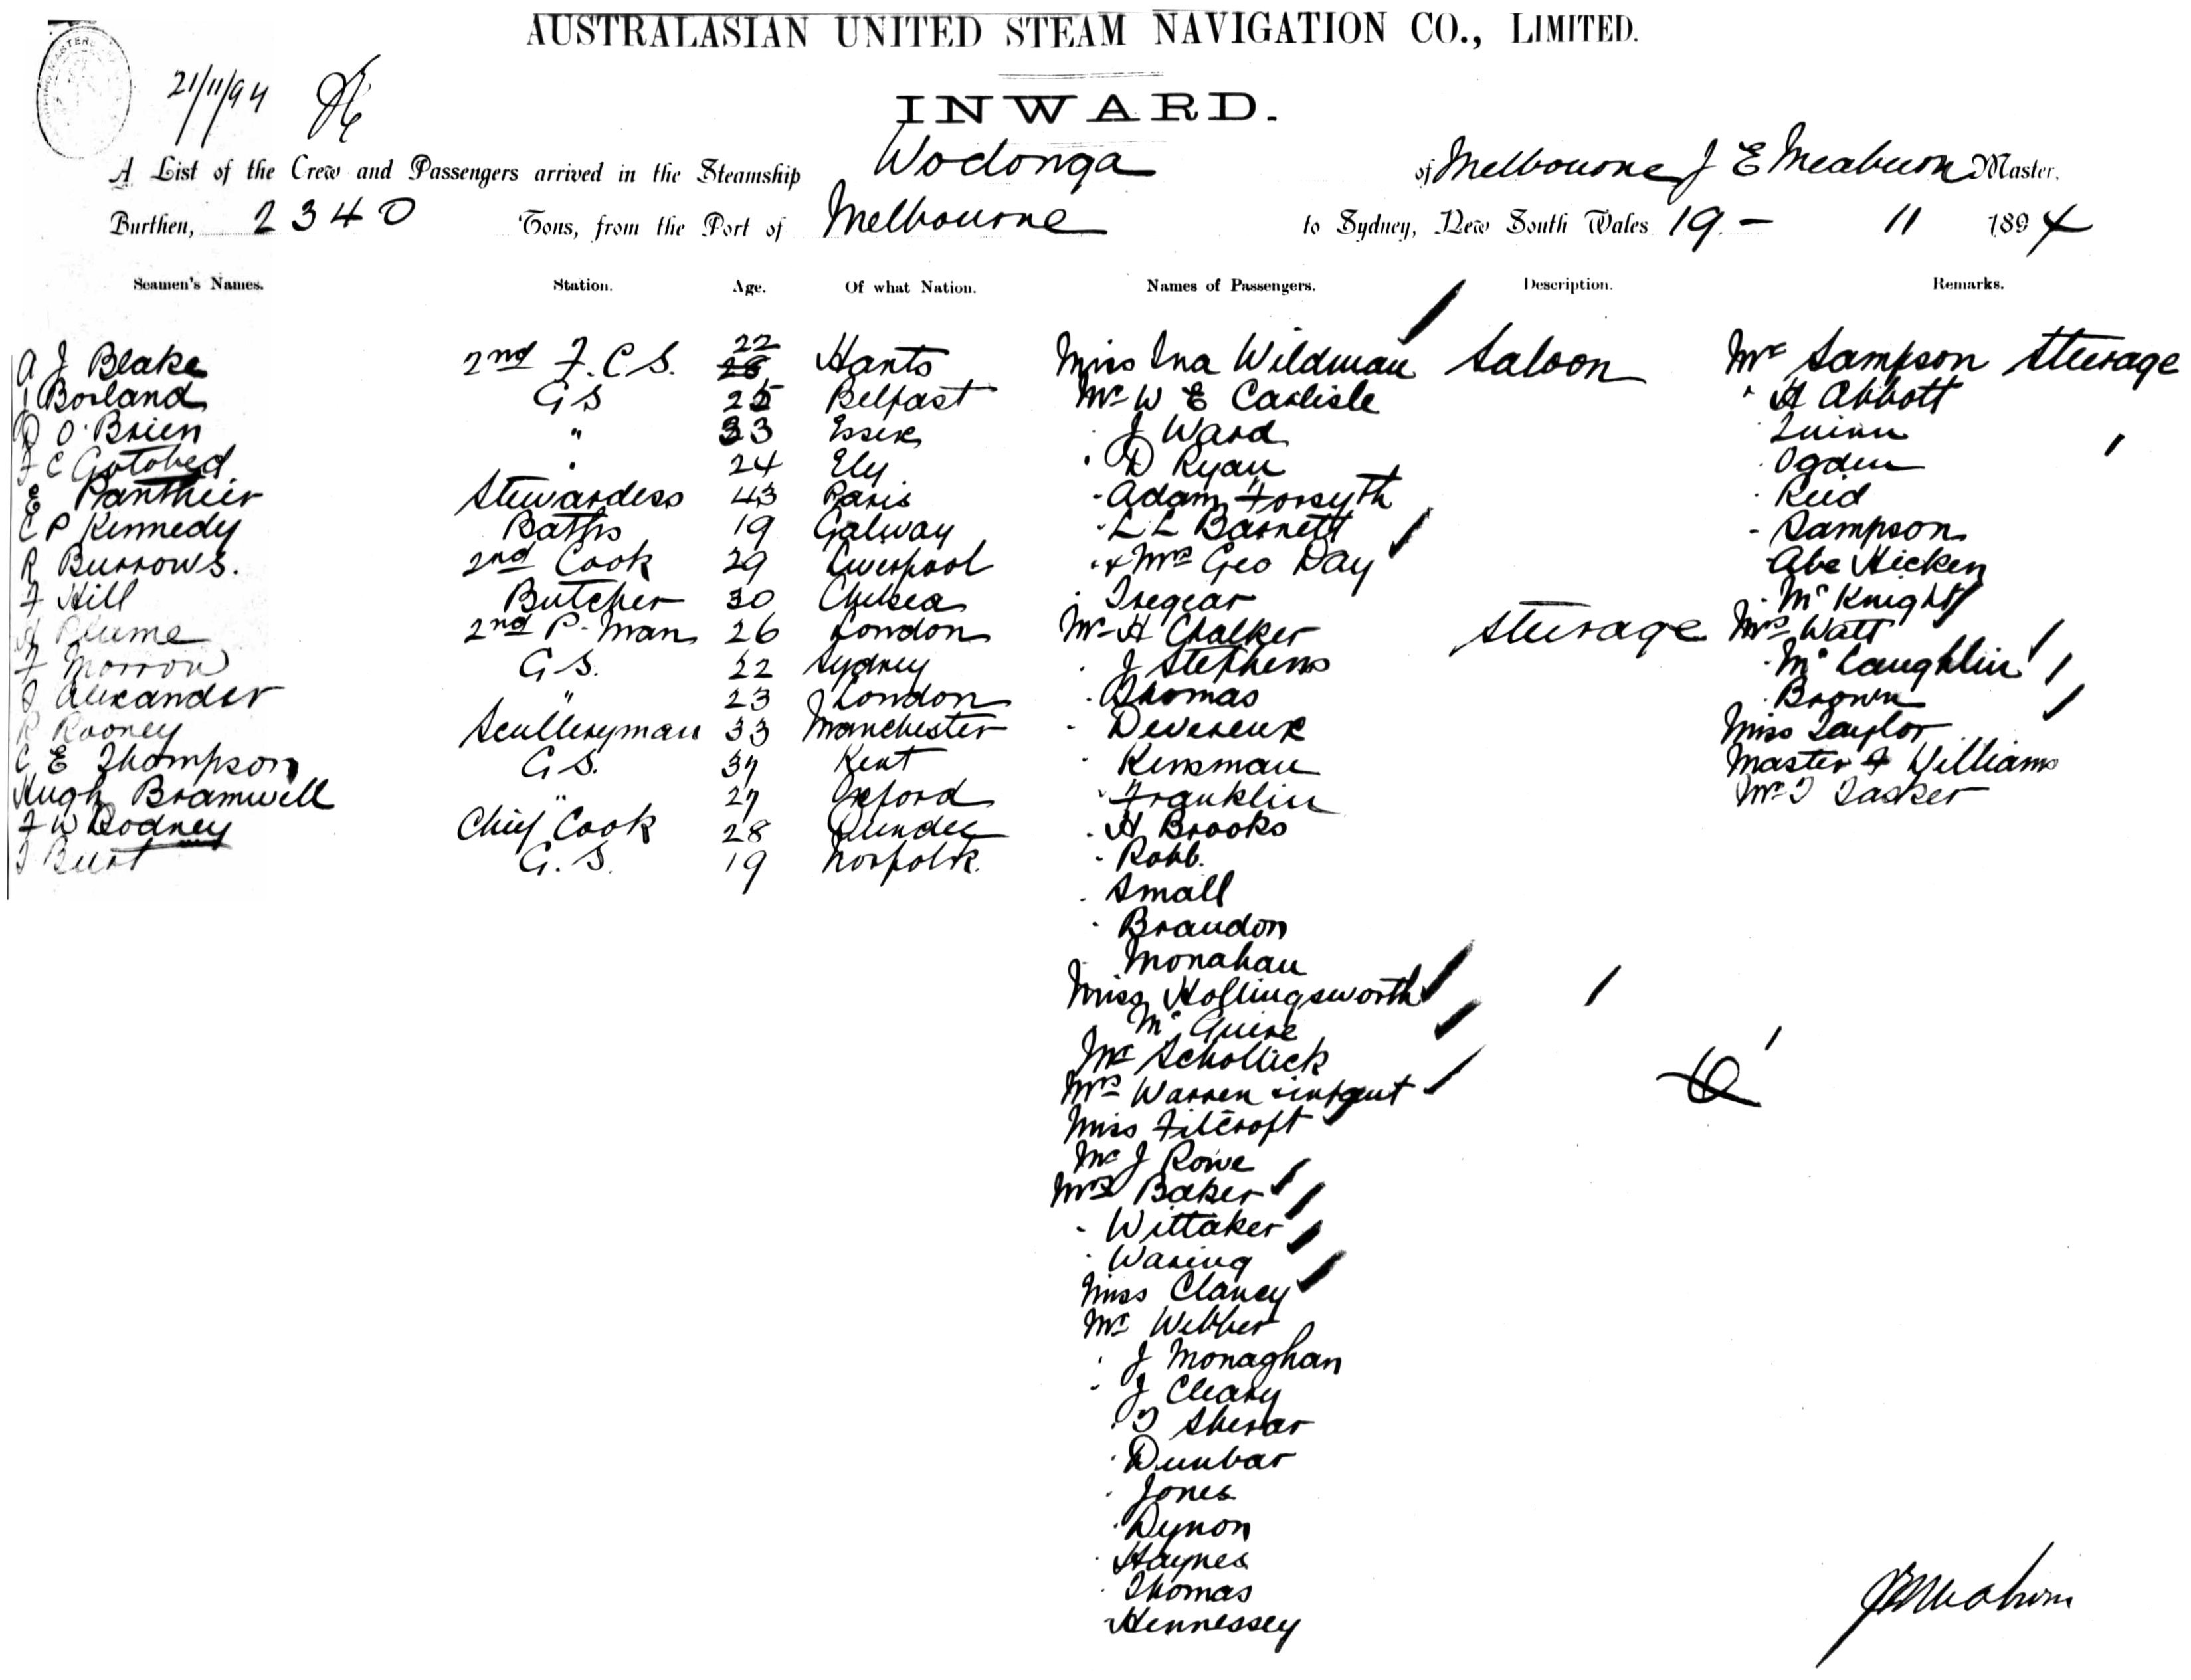 AUSTRALASIAN UNITED STEAM NAVIGATION CO., LIMITED.
21/11/94
INWARD.
A List of the Crew and Passengers arrived in the Steamship Wodonga of Melbourne J E Meaburn Master,
Burthen, 2340 Tons, from the Port of Melbourne to Sydney, New South Wales 19 - 11 1894
Seamen's Names. Station. Age. Of what Nation. Names of Passengers. Description. Remarks.
A J Blake 2nd F.C.S. 22 28 Hants Miss Ina Wildman Saloon Mr Sampson Steerage
J Borland G S 25 Belfast Mr W E Carlisle " A Abbott
D O'Brien " 33 Essex " J Ward " Quinn
F C Gotobed " 24 Ely " D Ryan " Ogden
E Panthier Stewardess 43 Paris " Adam Forsyth " Reid
C P Kennedy Baths 19 Galway " L L Barnett " Sampson
R Burrows. 2nd Cook 29 Liverpool " & Mrs Geo Day Abe Hicken
F Hill Butcher 30 Chelsea " Tregear " McKnight
A Plume 2nd P-man 26 London Mr A Chalker Steerage Mrs Watt
F Morrow G S. 22 Sydney " J Stephens " McLaughlin
J Alexander " 23 London " Thomas " Brown
R Rooney Sculleryman 33 Manchester " Devereux Miss Taylor
C E Thompson G S. 37 Kent " Kinsman Master F Williams
Hugh Bramwell " 27 Oxford " Franklin Mr T Tasker
F W Rodney Chief Cook 28 Dundee " H Brooks
Burt G. S. 19 Norfolk. " Robb.
" Small
" Brandon
" Monahan
Miss Hollingsworth
McGuire
Mr Schollick
Mrs Warren & infant
Miss Fitcroft
Mr J Rowe
Mrs Baker
" Wittaker
" Waring
Miss Clancy
Mr Webber
" J Monaghan
" J Cleary
" T Sherar
" Dunbar
" Jones
" Dynon
" Haynes
" Thomas
" Hennessey
J E Meaburn